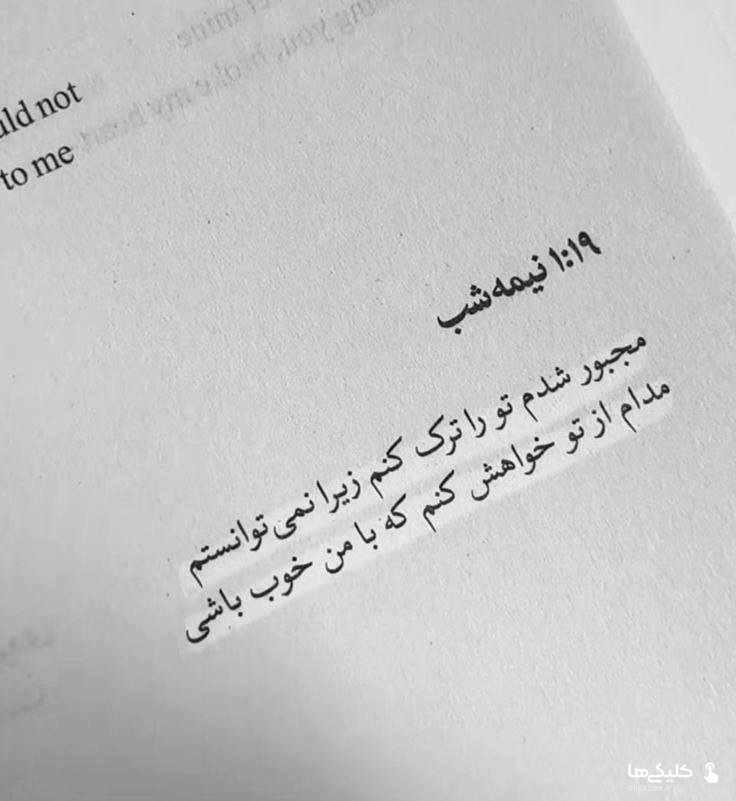 uld not
to me
۱:۱۹ نیمه‌شب
مجبور شدم تو را ترک کنم زیرا نمی‌توانستم
مدام از تو خواهش کنم که با من خوب باشی
کلیکی‌ها
clickbaz.ir